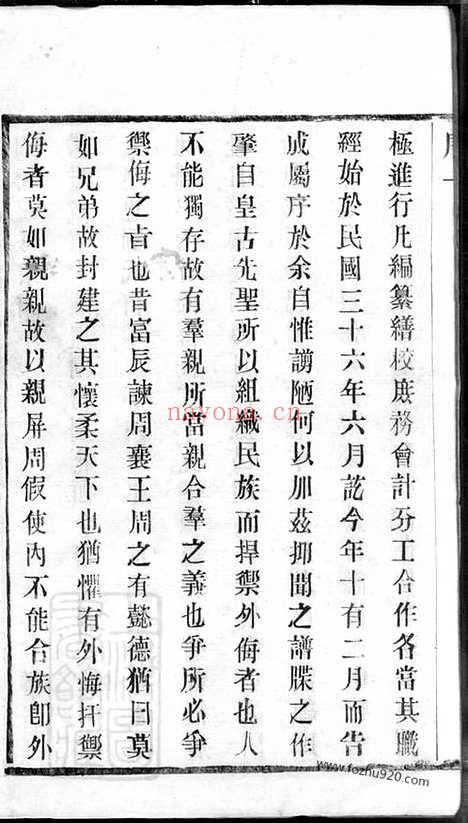 極進行凡編纂繕校庶務會計分工合作各當其職
經始於民國三十六年六月訖今年十有二月而告
成屬序於余自惟謭陋何以加茲抑聞之譜牒之作
肇自皇古先聖所以組織民族而捍禦外侮者也人
不能獨存故有羣親所當親合羣之義也爭所必爭
禦侮之旨也昔富辰諫周襄王周之有懿德猶曰莫
如兄弟故封建之其懷柔天下也猶懼有外侮扞禦
侮者莫如親親故以親屏周假使內不能合族卽外
nayong.cn
www.fozhu920.com